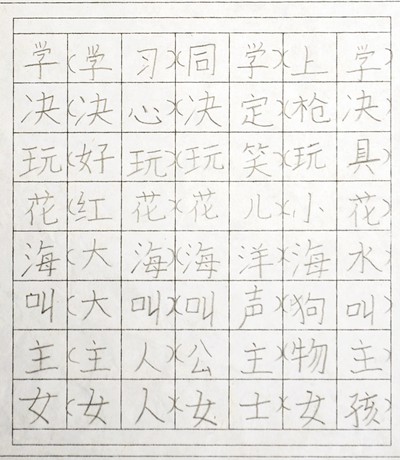 学(学习)(同学)(上学)
决(决心)(决定)(枪决)
玩(好玩)(玩笑)(玩具)
花(红花)(花儿)(小花)
海(大海)(海洋)(海水)
叫(大叫)(叫声)(狗叫)
主(主人)(公主)(物主)
女(女人)(女士)(女孩)